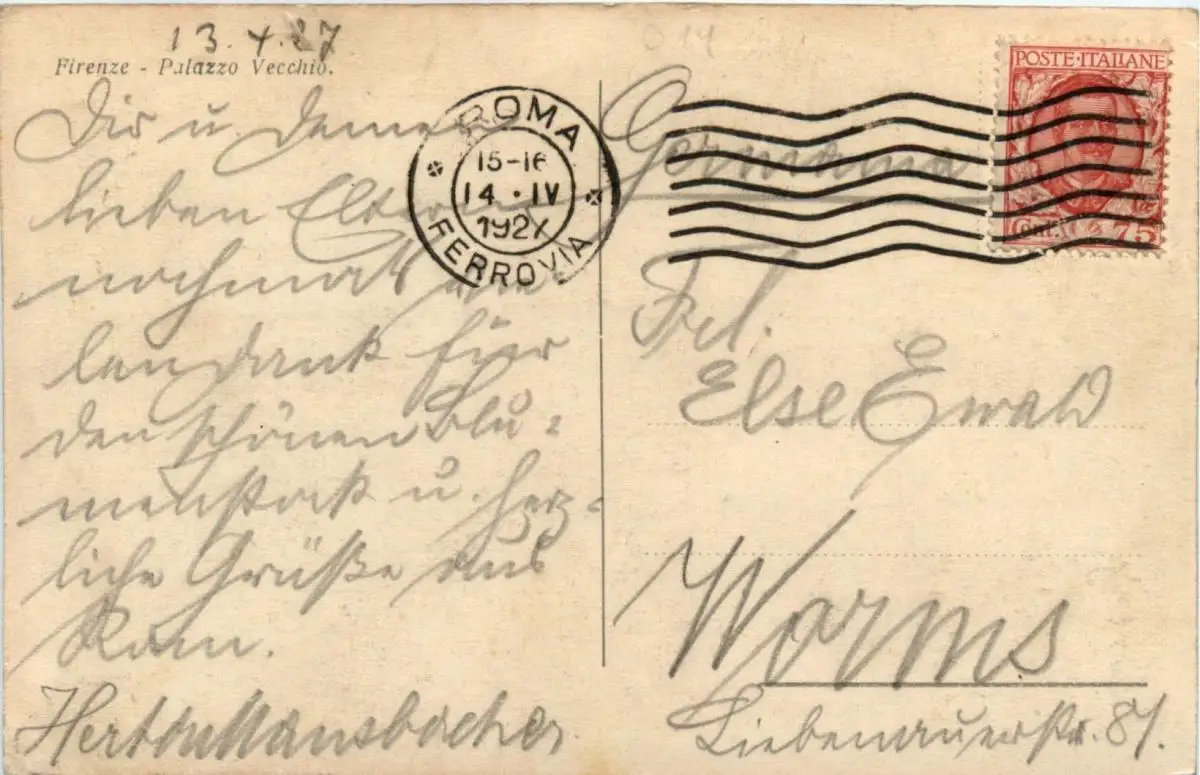 13.4.27
Firenze - Palazzo Vecchio.
Dir u. Deinen
lieben Eltern
nochmals vie
len Dank für
den schönen Blu=
menstock u. herz=
liche Grüße aus
Rom.
Mansbacher
ROMA
15-16
14 · IV
1927
FERROVIA
POSTE·ITALIANE
Cent. 75
Germania
Frl.
Else Ewald
Worms
Liebenauerstr. 81.